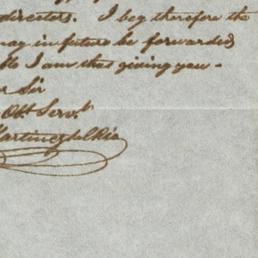 directors. I beg therefore the
may in future be forwarded
I am thus giving you -
Sir
Obt Servt